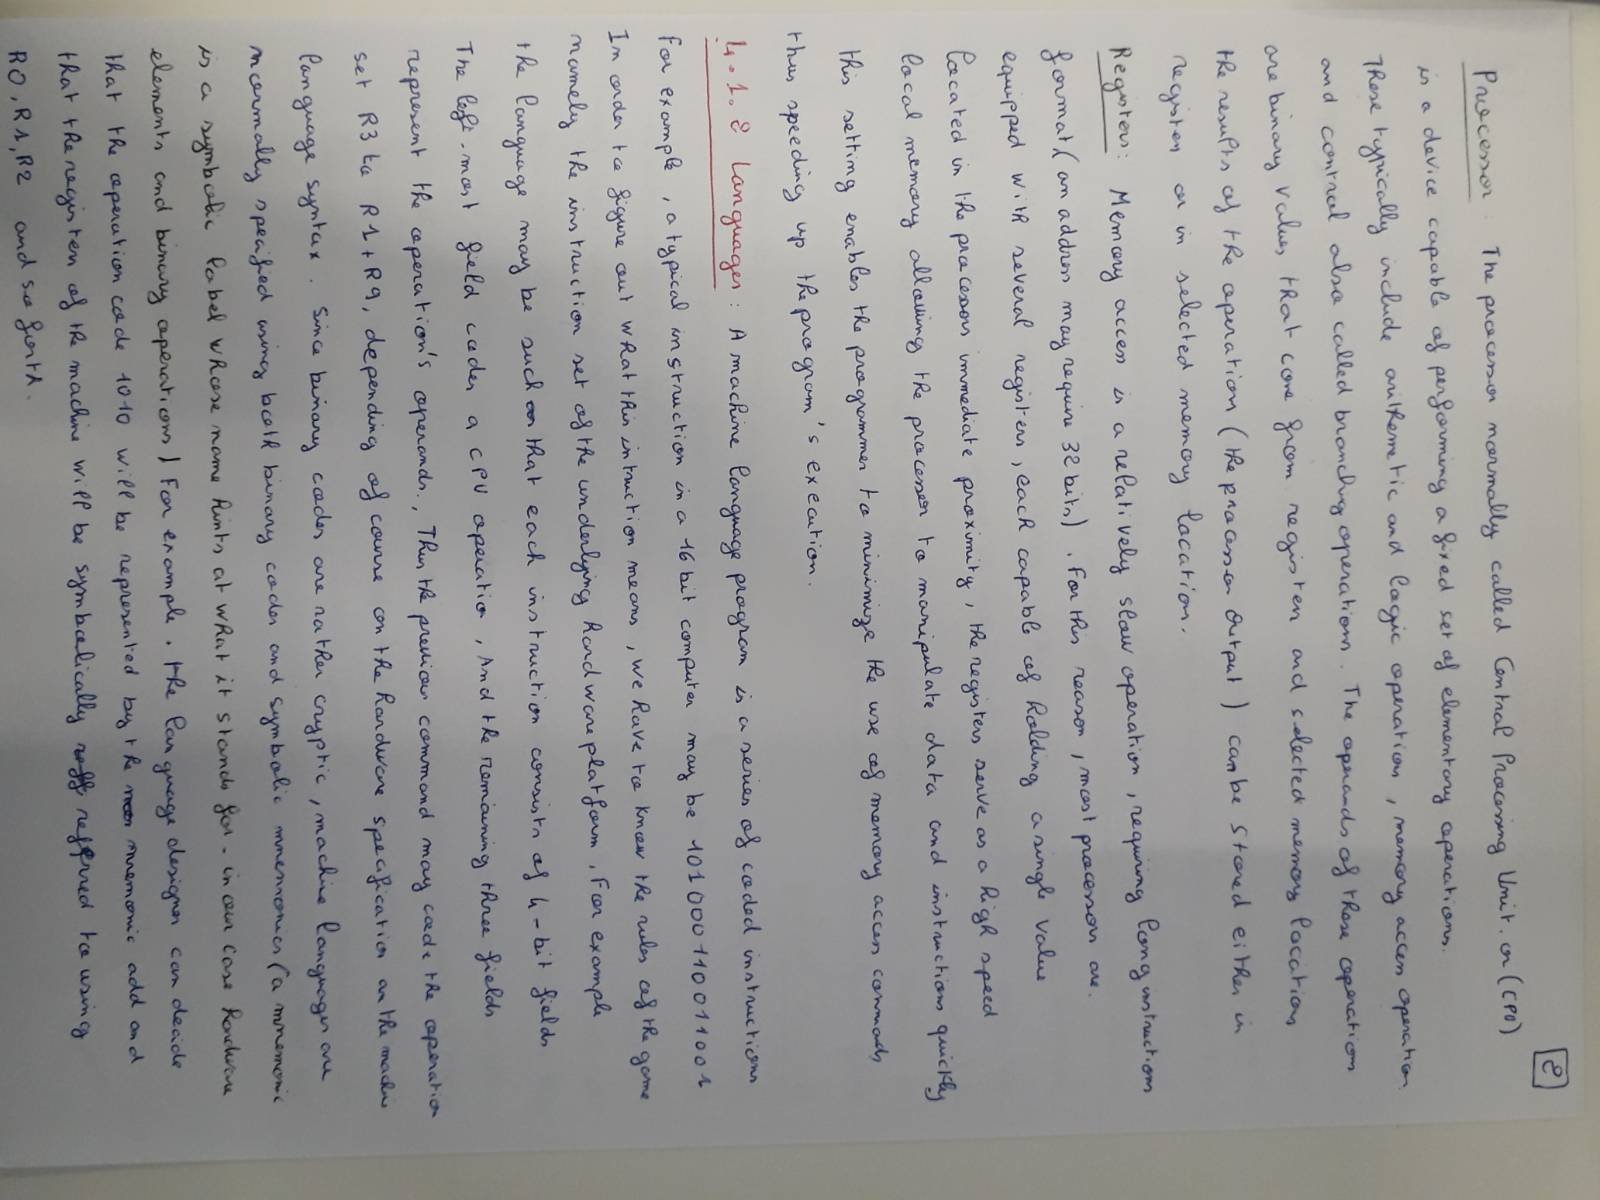 2
Processor : The processor normally called Central Processing Unit. or (CPU)
is a device capable of performing a fixed set of elementary operations.
These typically include arithmetic and logic operation, memory access operation
and control also called branching operations. The operands of those operation
are binary values that come from registers and selected memory locations
the results of the operation (the processor output) can be stored either in
register or in selected memory location.
Registers : Memory access is a relatively slow operation, requiring long instructions
format (an address may require 32 bits). For this reason, most processors are.
equipped with several registers, each capable of holding a single value
located in the processors immediate proximity, the registers serve as a high speed
local memory allowing the processor to manipulate data and instructions quickly
this setting enables the programmer to minimize the use of memory access commands
thus speeding up the program's execution.
4.1.2 Languages : A machine language program is a series of coded instructions
For example, a typical instruction in a 16 bit computer may be 101000110011001
In order to figure out what this instruction means, we have to know the rules of the game
namely the instruction set of the underlying hardware platform, For example
the language may be such that each instruction consists of 4-bit fields
The left-most field codes a CPU operation, And the remaining three fields
represent the operation's operands., Thus the previous command may code the operation
set R3 to R1 + R9, depending of course on the hardware specification on the machine
language syntax. Since binary codes are rather cryptic, machine languages are
normally specified using both binary codes and symbolic mnemonics (a mnemonic
is a symbolic label whose name hints at what it stands for - in our case hardware
elements and binary operations) For example. the language designer can decide
that the operation code 1010 will be represented by the mnemonic add and
that the registers of the machine will be symbolically referred to using
R0, R1, R2 and so forth.